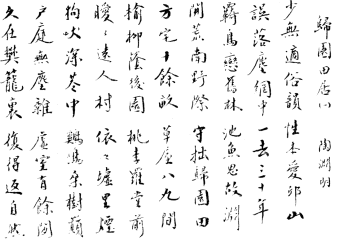 歸園田居 陶淵明
少無適俗韻 性本愛邱山
誤落塵網中 一去三十年
羈鳥戀舊林 池魚思故淵
開荒南野際 守拙歸園田
方宅十餘畝 草屋八九間
榆柳蔭後園 桃李羅堂前
曖〻遠人村 依〻墟里煙
狗吠深巷中 鷄鳴桑樹巔
戶庭無塵雜 虛室有餘閒
久在樊籠裏 復得返自然